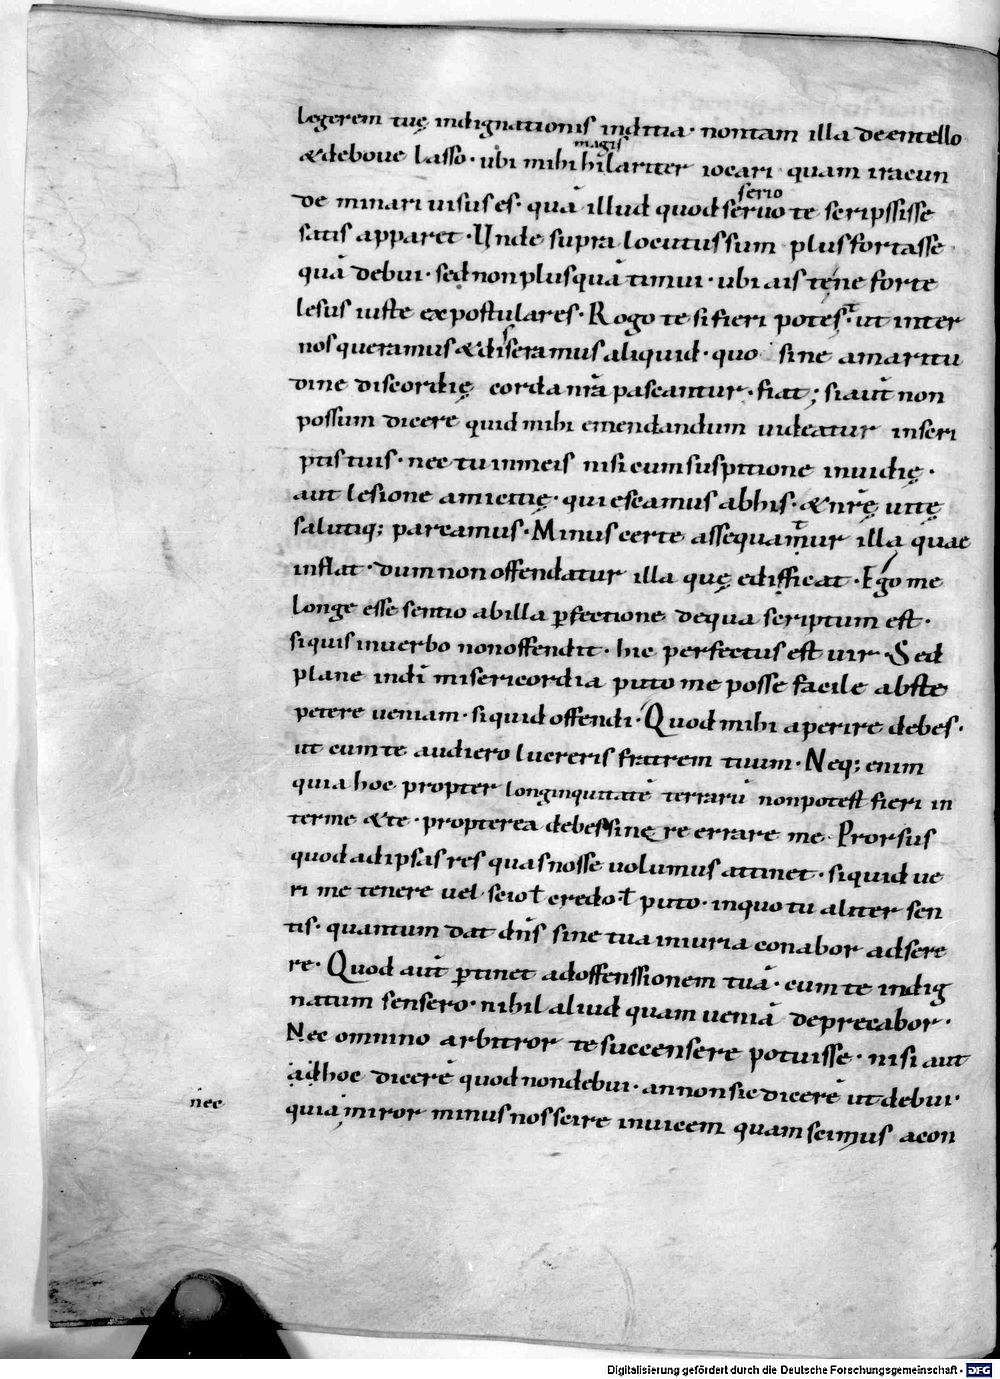 legerem tuę indignationis inditia· nontam illa deentello
magis
&deboue lasso· ubi mihi hilariter iocari quam iracun
serio
de minari uisus es· quā illud quod seruo te scripssisse
satis apparet· Unde supra locutus sum plus fortasse
quā debui· sed non plus quā timui· ubi ais tene forte
lesus iuste expostulares· Rogo te si fieri potest· ut inter
nos queramus &disseramus aliquid· quo sine amaritu
dine discordię corda nr̄a pascantur· fiat; si aut̄ non
possum dicere quid mihi emendandum uideatur inscri
ptis tuis· nec tu inmeis nisi cum suspitione inuidię·
aut lesione amicitię· quiescamus abhis· &nr̄ę uitę
salutiq; parcamus· Minus certe assequatur illa quae
inflat· dum non offendatur illa quę edifficat· Ego me
longe esse sentio abilla ꝑfectione dequa scriptum est·
siquis inuerbo nonoffendit· hic perfectus est uir· Sed
plane indī misericordia puto me posse facile abste
petere ueniam· siquid offendi· Quod mihi aperire debes·
ut cum te audiero lucreris fratrem tuum· Neq; enim
quia hoc propter longinquitatē terrarū nonpotest fieri in
terme &te· propterea debes sinere errare me· Prorsus
quod adipsas res quas nosse uolumus attinet· siquid ue
ri me tenere uel scio ł credo ł puto· inquo tu aliter sen
tis· quantum dat dn̄s sine tua iniuria conabor adsere
re· Quod aut̄ ꝑtinet adoffenssionem tuā· cum te indig
natum sensero· nihil aliud quam ueniā deprecabor·
Nec omnino arbitror te succensere potuisse· nisi aut
adhoc dicerē quod nondebui· an non sic dicerē ut debui·
nec
quia miror minus nos scire inuicem quam scimus acon
Digitalisierung gefördert durch die Deutsche Forschungsgemeinschaft - DFG